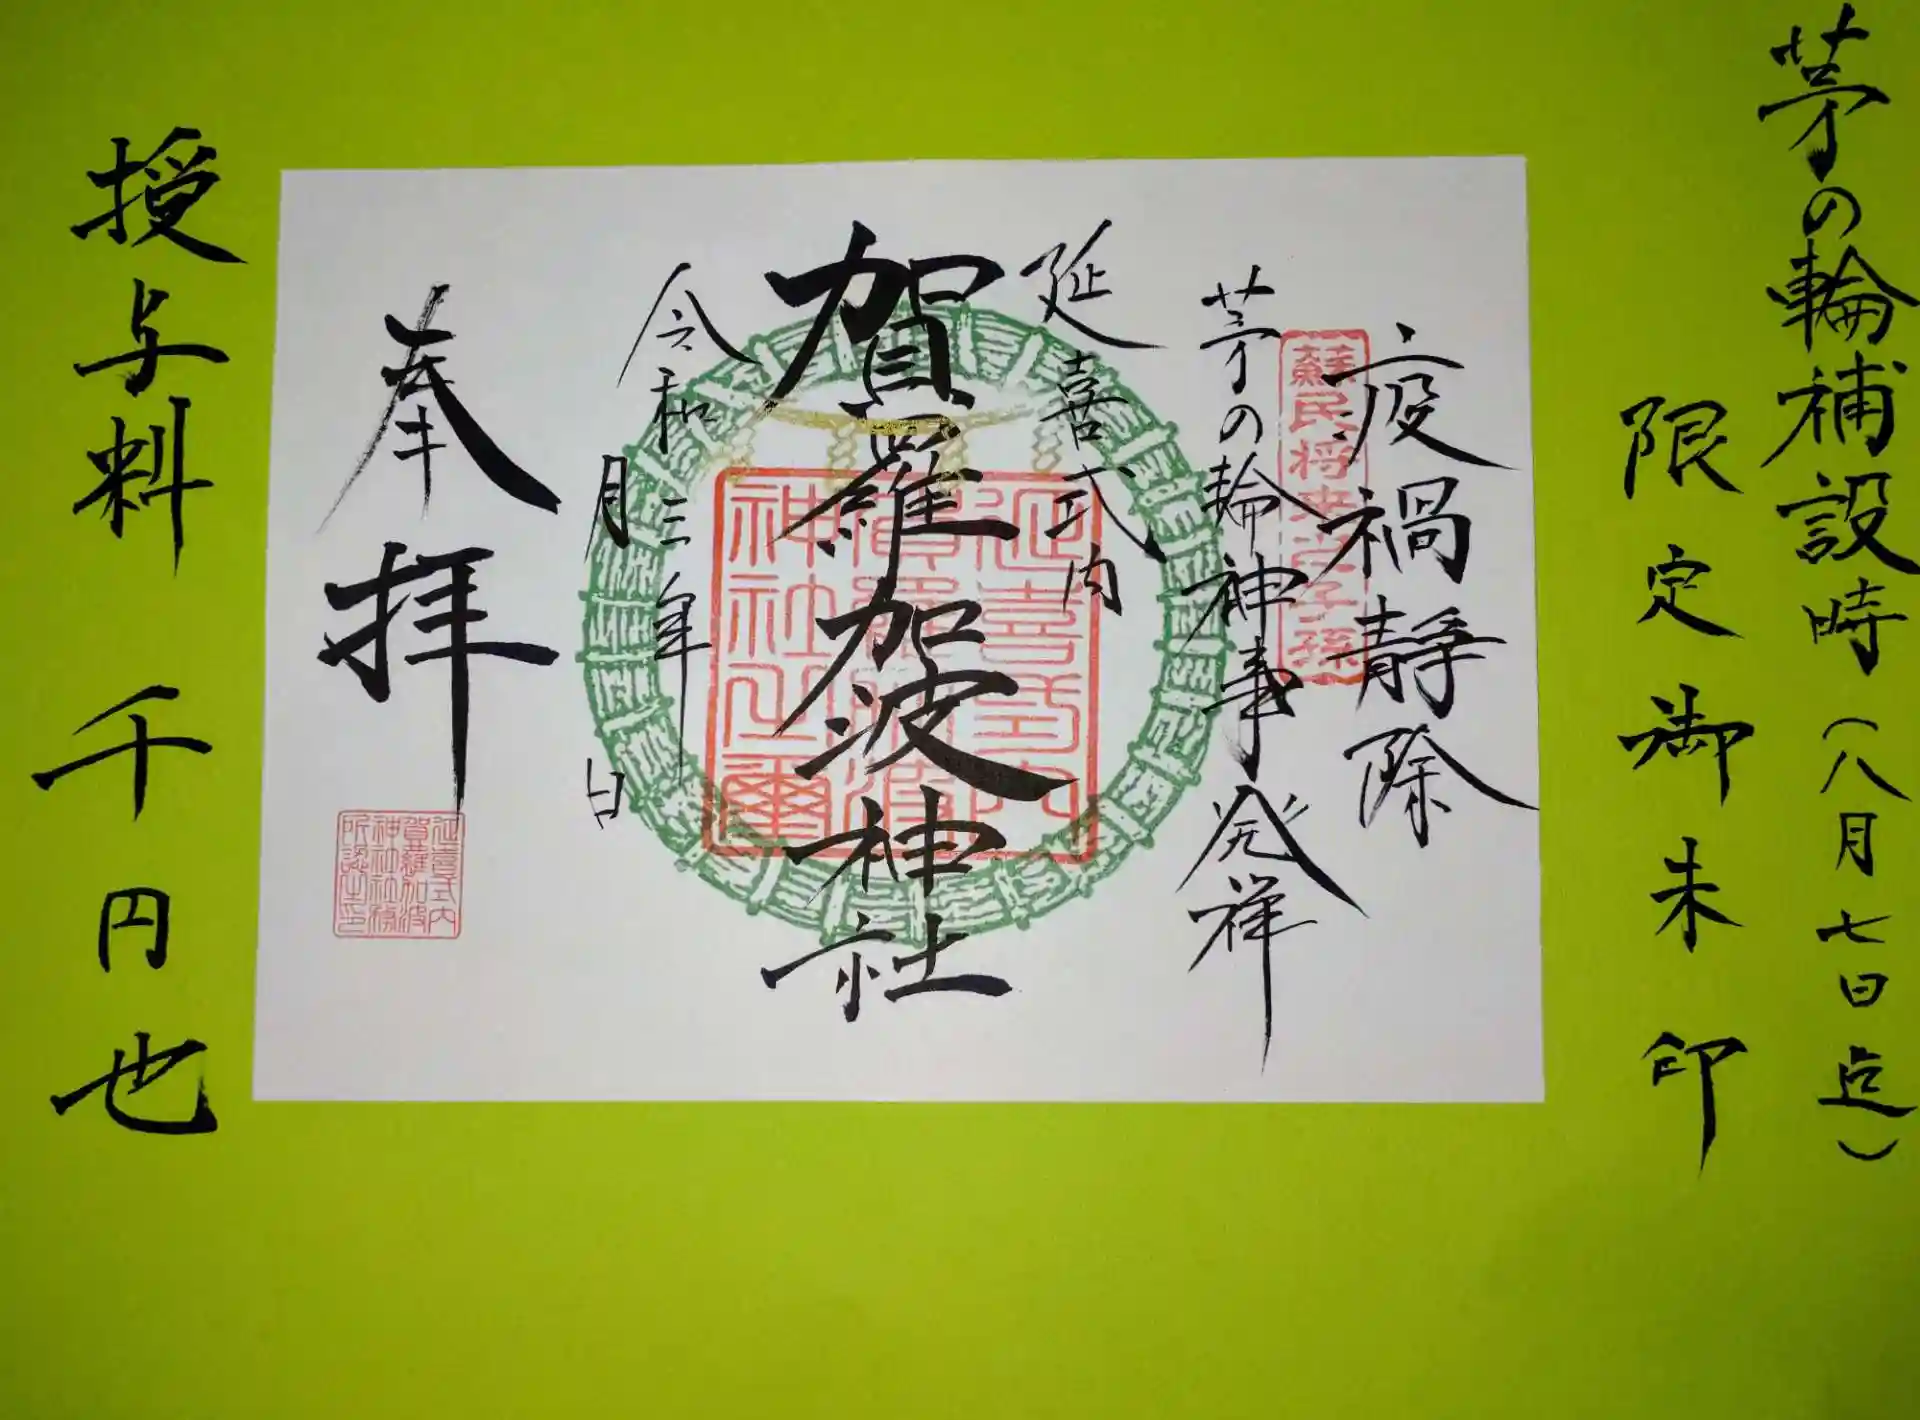 茅の輪補設時（八月七日迄）
限定御朱印
疫禍静除
蘇民将来之子孫
茅の輪神事発祥
延喜式内
賀羅加波神社
延喜式内
賀羅加波
神社之璽
令和三年
月　日
奉拝
延喜式内
賀羅加波
神社社務
所認之印
授与料　千円也